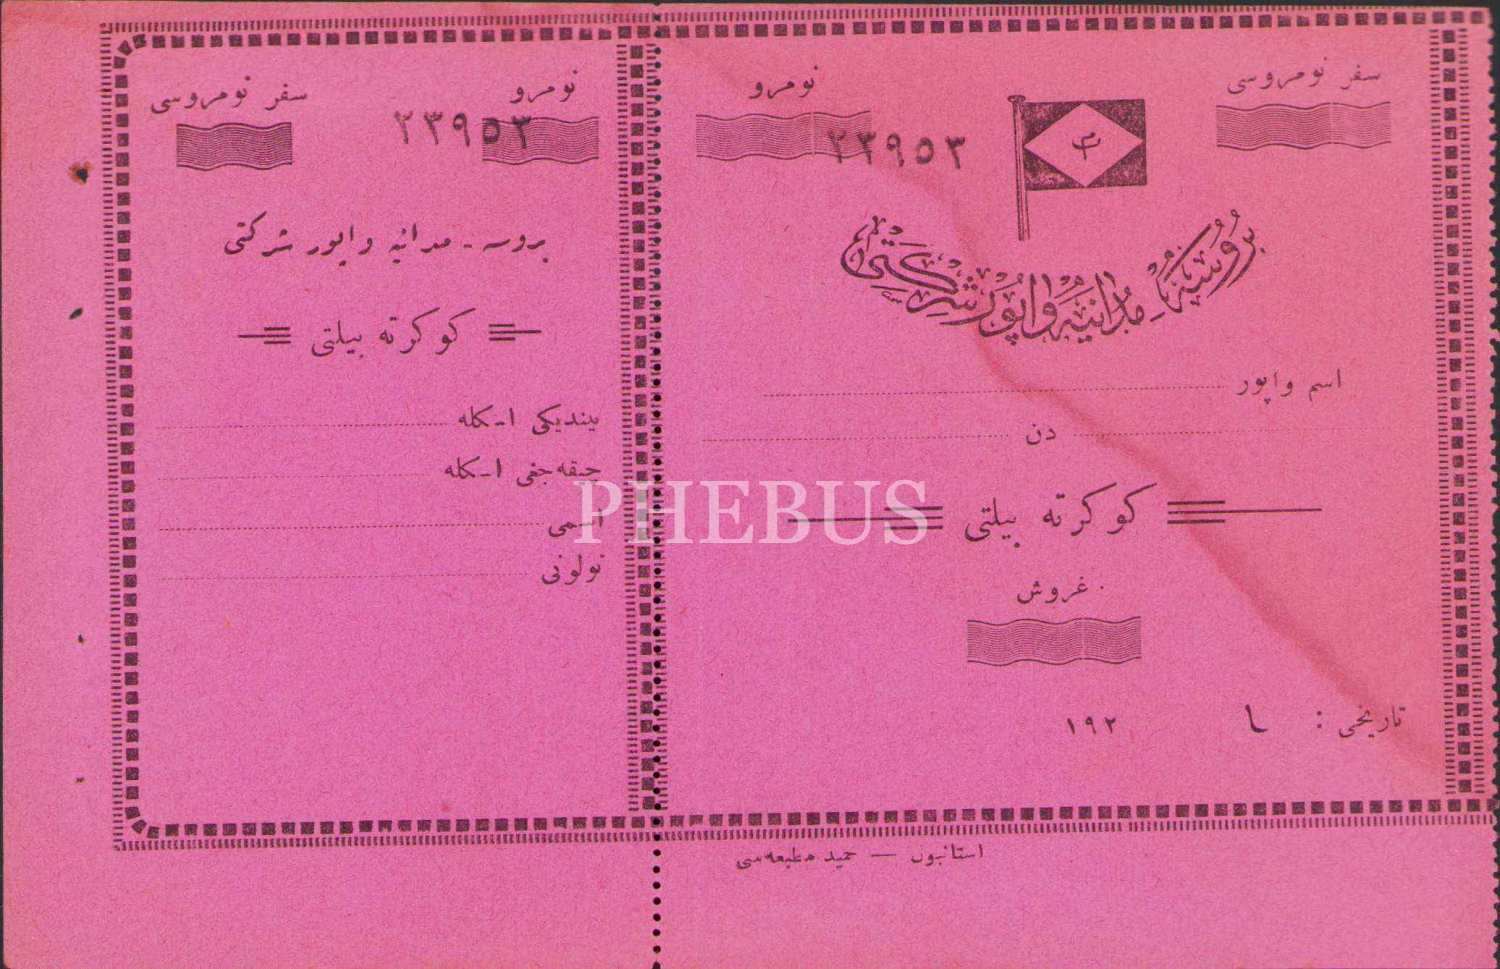 سفر نومروسی
نومرو
٢٣٩٥٣
بروسه - مدانیه واپور شرکتی
اسم واپور
دن
كوكرته بیلتی
غروش
تاریخی :
١٩٢
استانبول — حمید مطبعه‌سی
نومرو
سفر نومروسی
٢٣٩٥٣
بروسه - مدانیه واپور شرکتی
كوكرته بیلتی
بیندیكی اسكله
چیقه‌جغی اسكله
اسمی
نولونی
PHEBUS